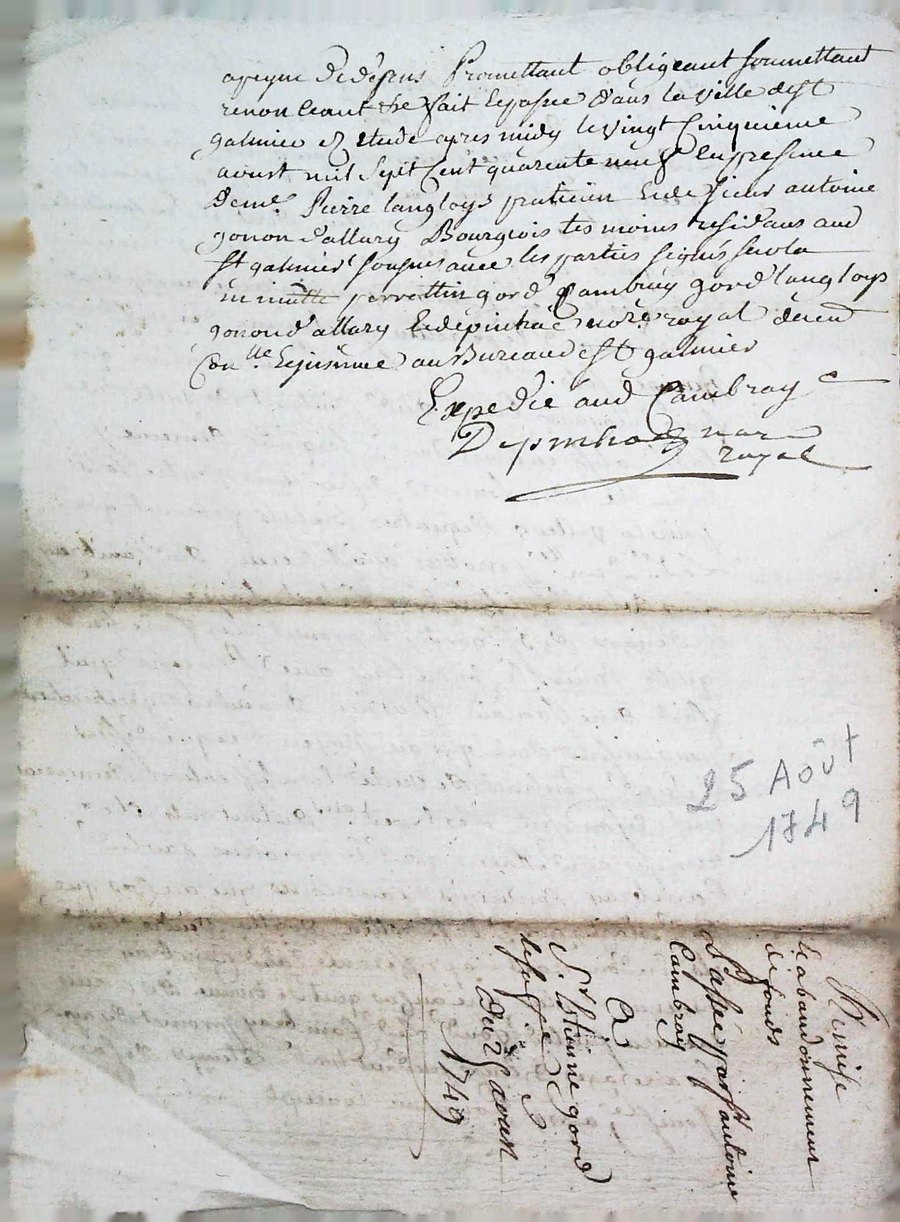 apeyne de dépens Promettant obligeant soumettant
renonceant &c fait et passé dans la ville de St
galmier et étude apres midy le vingt cinquieme
aoust mil sept cent quarente neuf en presence
de me. Pierre langloys praticien et de sieur antoine
gonon d'allary Bourgeois tesmoins residans aud
st galmier sousnés avec les parties signés se
la minutte gord Cambray gord langloys
gonon d'allary et depinhac nore royal deüem
Con.lle et insinué au Bureau de st galmier
Expedié aud Cambray
Depinhac nore
royal
25 Août
1749
Remise
et abandonnement
de fonds
Passé par Sr antoine
Cambray
A
Sr. Etienne gord
Du 25 aoust
1749